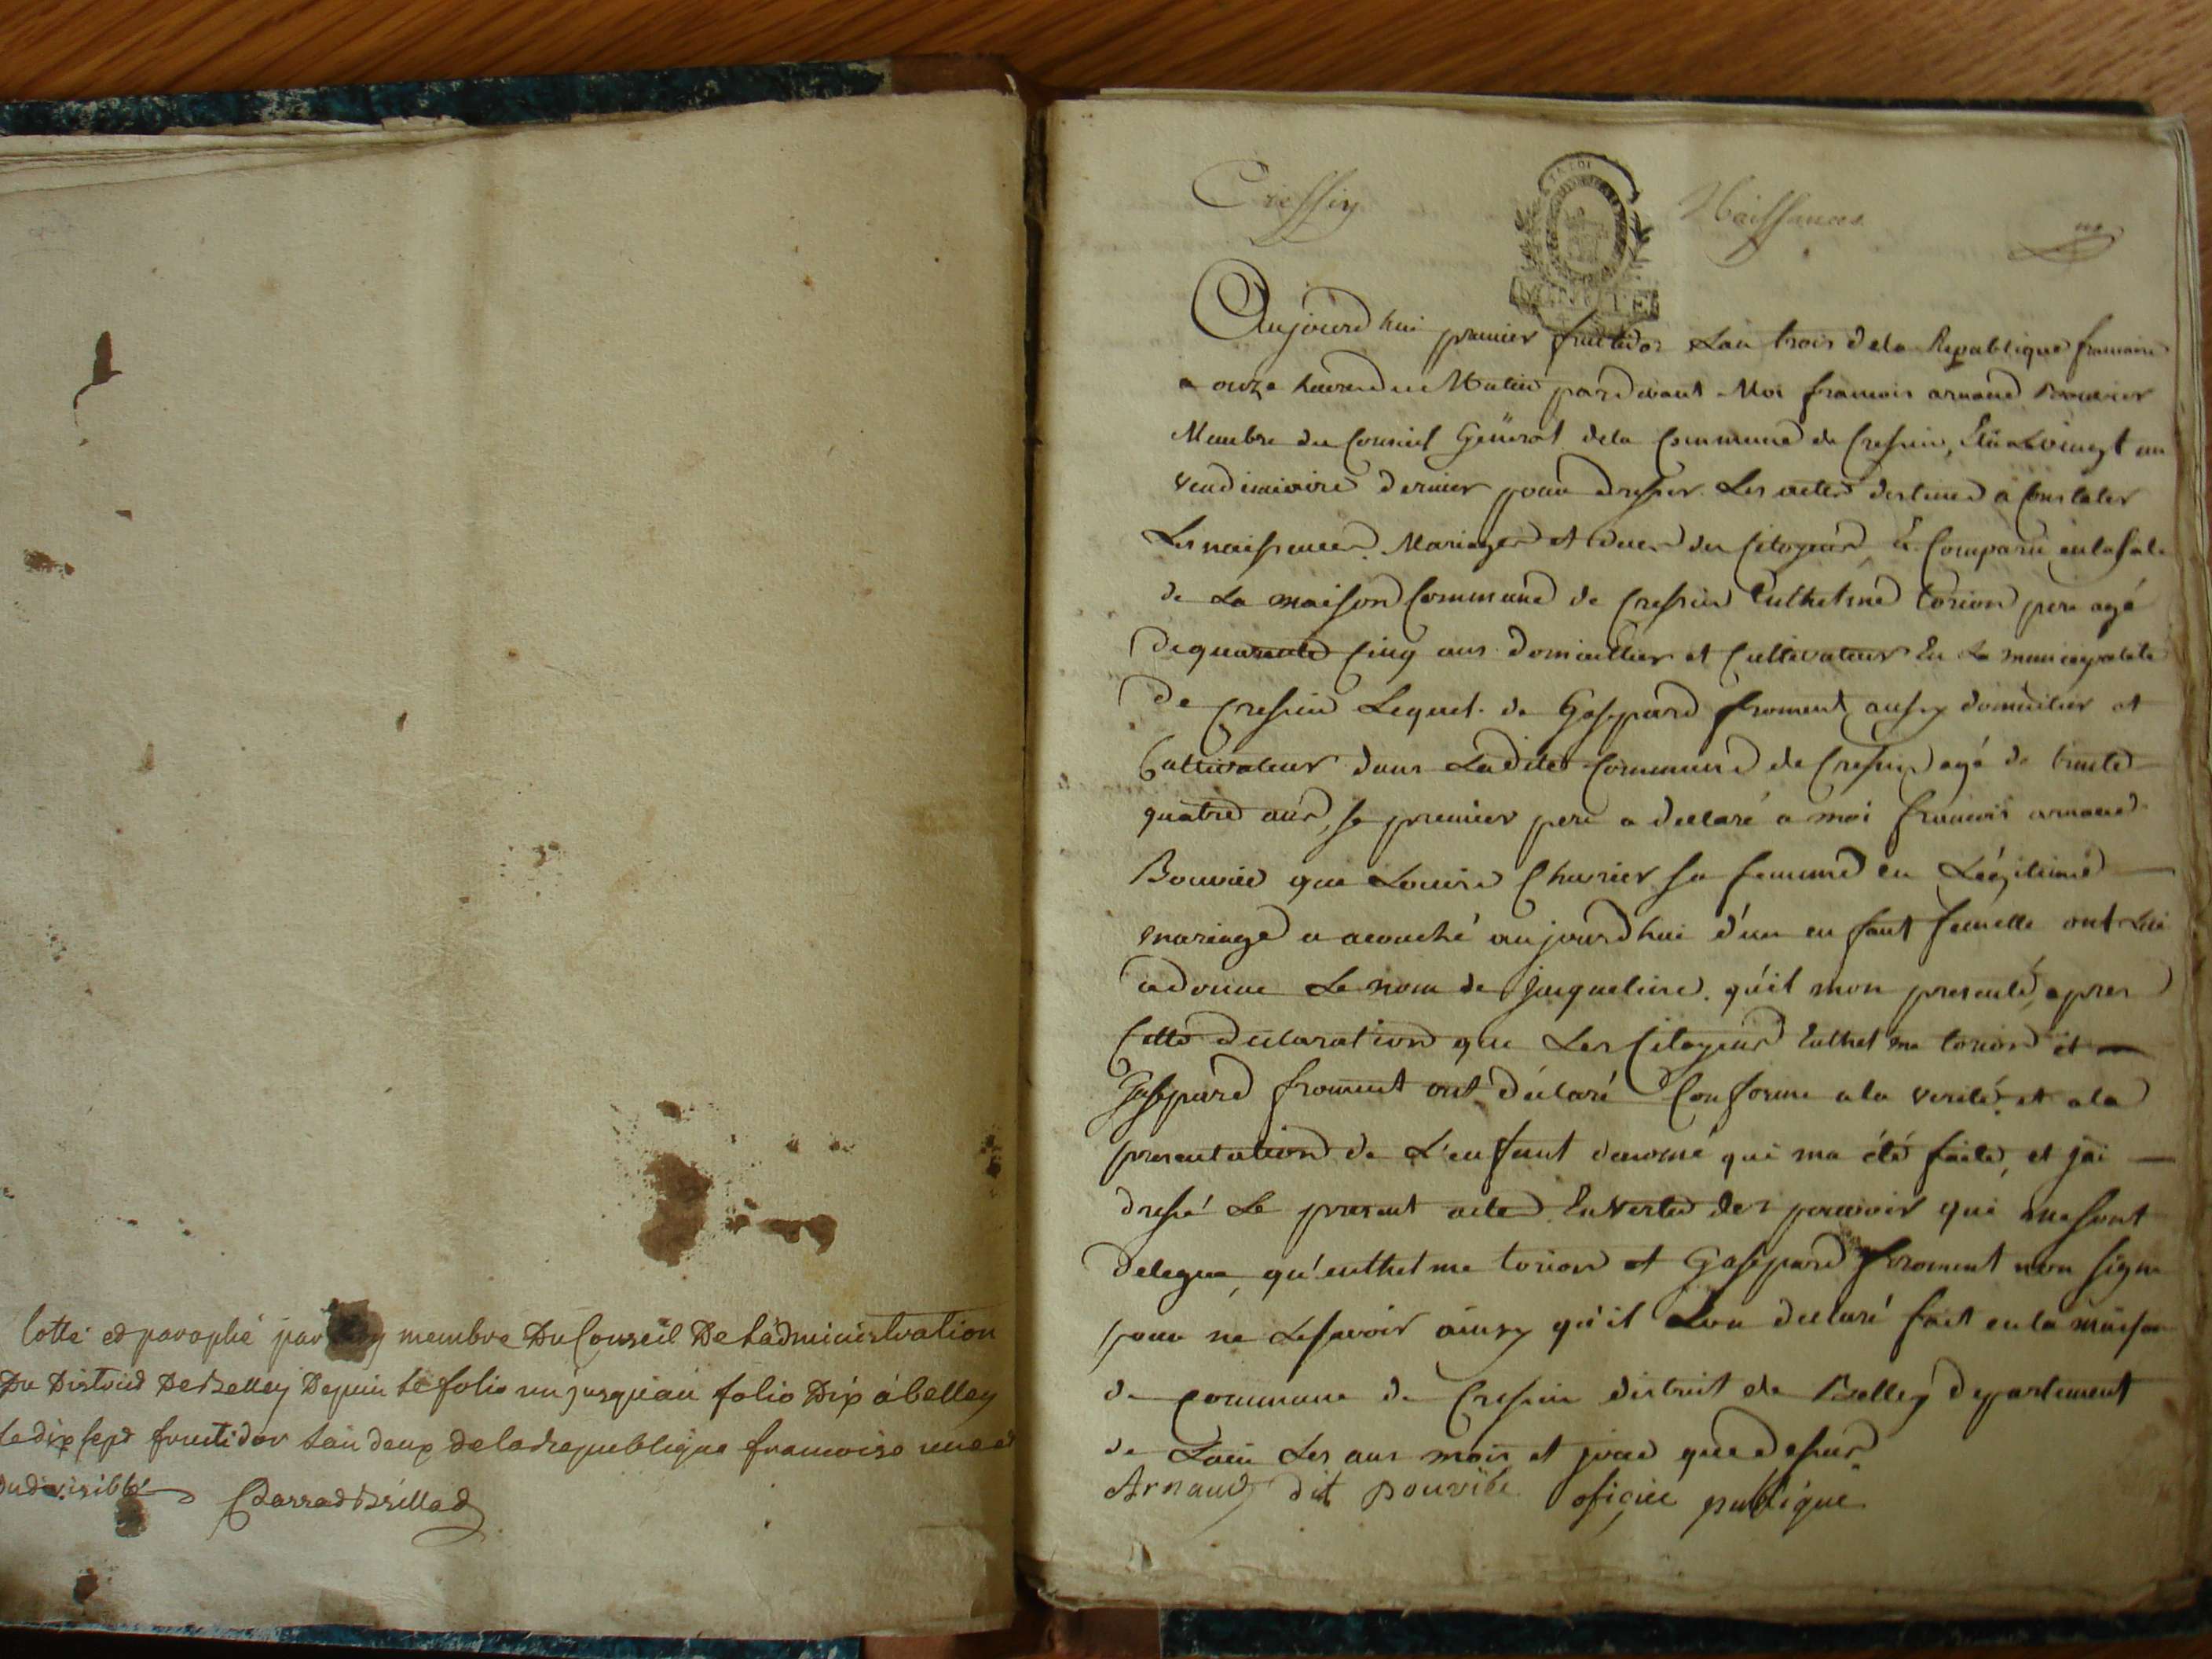 Cotté et paraphé par membre Du Conseil De Ladministration
Du District De Belley Depuis Le folio un jusquau folio Dix á belley
Le dix sept fructidor Lan deux De la république francoise une et
Indivisible
Cressin
Naissances
MINUTE
Aujourdhui premier fructidor Lan trois dela Republique francaise
a onze heures du Matin pardevant Moi francois arnaud Bouvier
Membre du Conseil General dela Commune de Cressin, Elu Le vingt un
vendemiaire dernier pour dresser Les actes destiné a Constater
Les naissances Mariages et deces des Citoyens, Est Comparu en la sale
de La maison Commune de Cressin torion pere agé
de quarante Cinq ans domicillier et Cultivateur En La municipalité
De Cressin Lequel de Gaspard froment aussy domicilier et
Cultivateur dans Ladite Commune de Cressin agé de trente
quatre ans, Le premier pere a declaré a moi francois arnaud
Bouvier que Louise sa femme en Légitime
mariage a acouché aujourdhui d'un enfant femelle ont Lui
a donné Le nom de Jacqueline qu'il mon presenté, apres
Cette declaration que Les Citoyens torion et
Gaspard froment ont déclaré Conforme a la verité et a la
presentation de L'enfant denomé qui ma été faite, et jai
dressé Le present acte En vertu des pouvoir qui me sont
delegué, qu' torion et Gaspard froment non signe
pour ne Le savoir ainsy qu'il Lon declaré fait en la maison
de commune de Cressin district de Belley departement
de Lain Les ans mois et jour que dessus
Arnaud dit Bouvié oficié publique